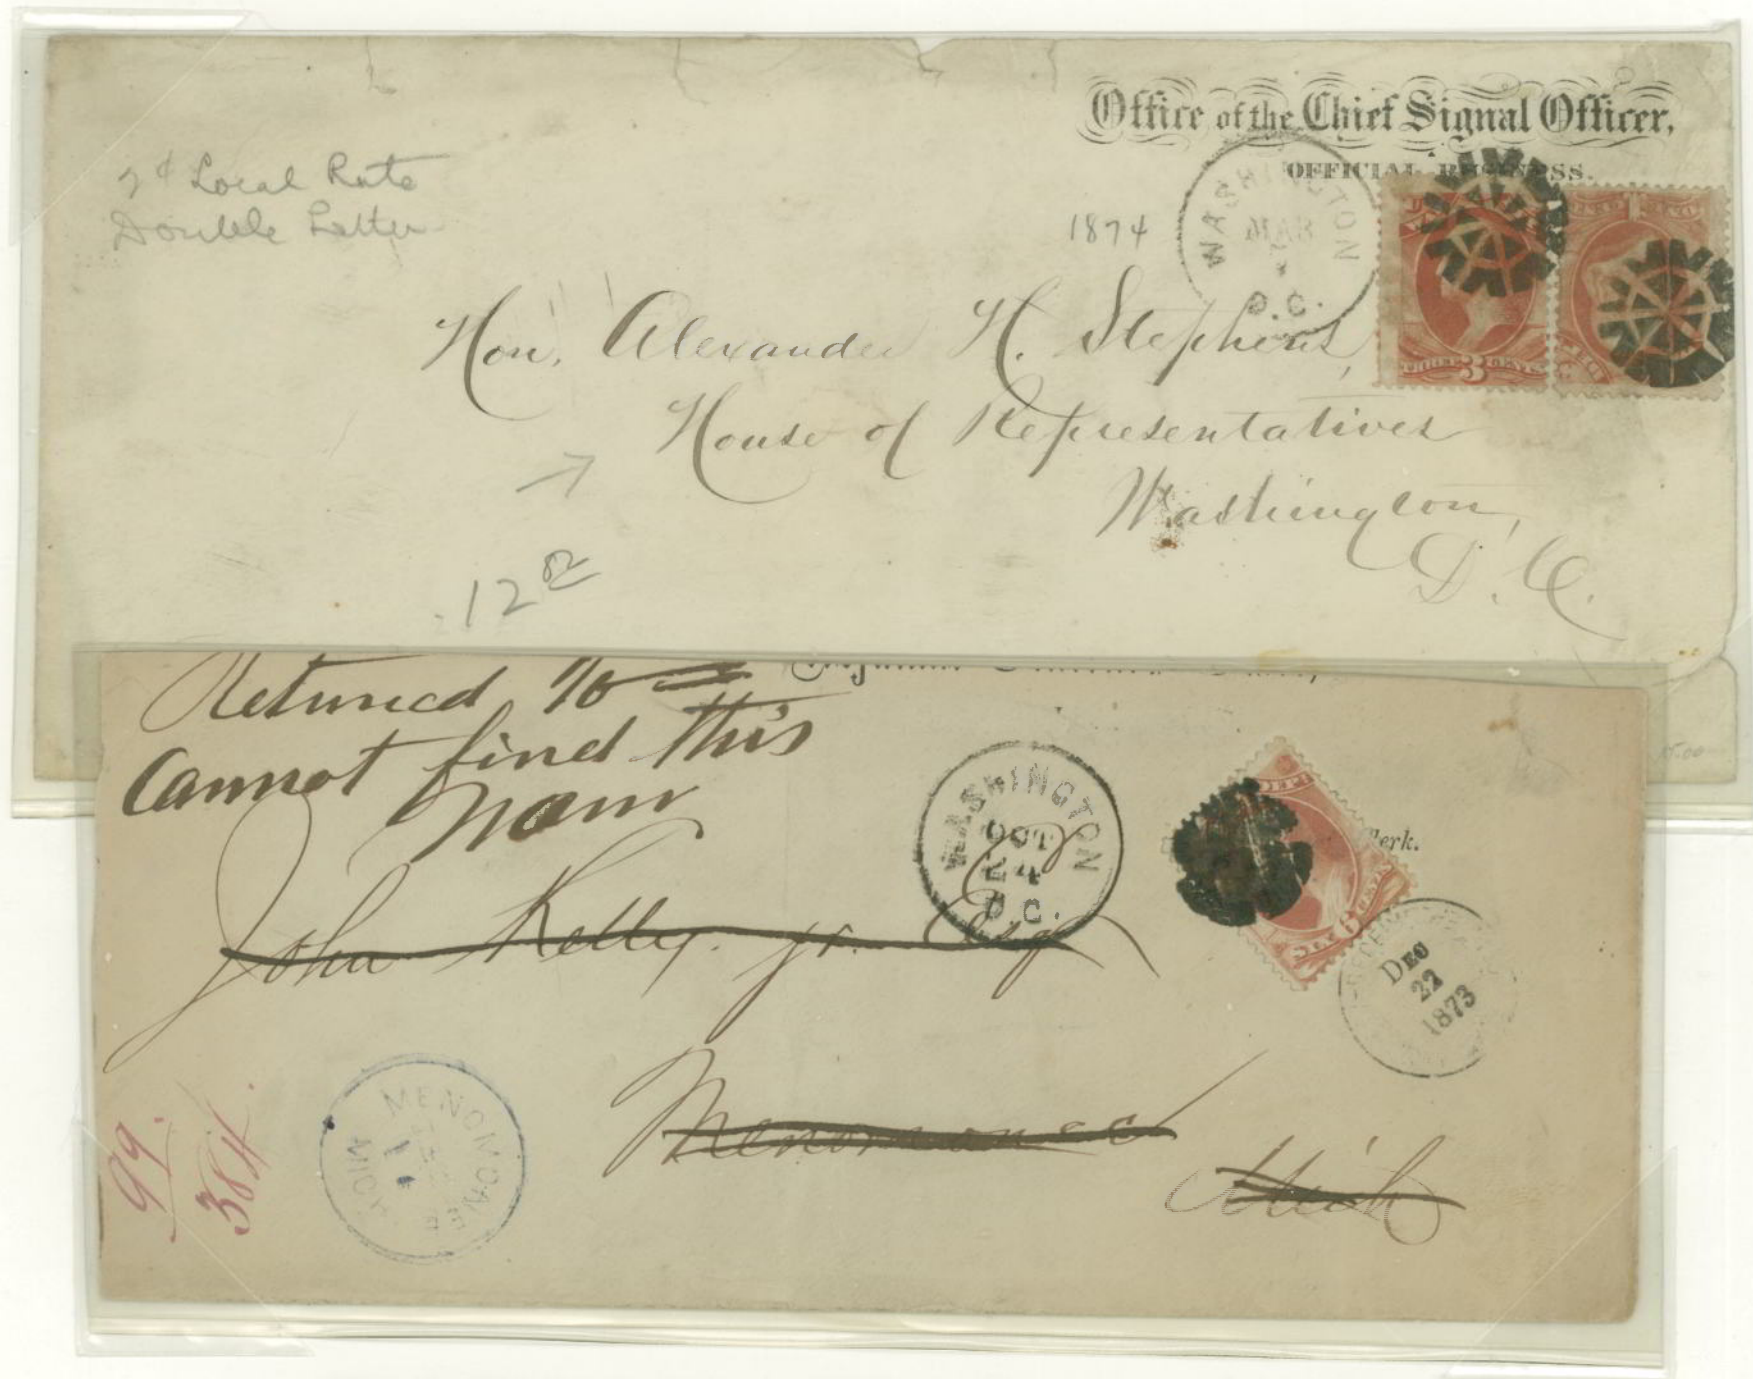 Office of the Chief Signal Officer,
OFFICIAL BUSINESS.
2¢ Local Rate
Double Letter
1874
WASHINGTON
MAR
D.C.
3 CENTS
Hon. Alexander H. Stephens,
House of Representatives
Washington,
D. C.
12
15.00
Returned to
Cannot find this
Nam
WASHINGTON
OCT
24
D.C.
DEPT
SIX 6 CENTS
Clerk.
John Kelly. jr. Esq
DEC
22
1873
Menomonee
Mich
MENOMONEE
MICH
99.
384.